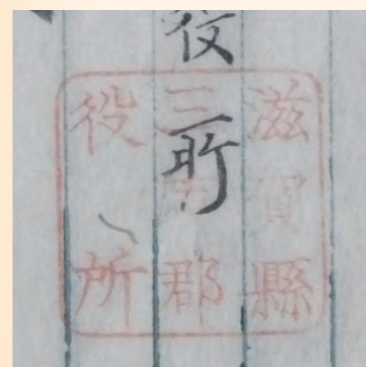 役所
滋賀縣
郡
役所